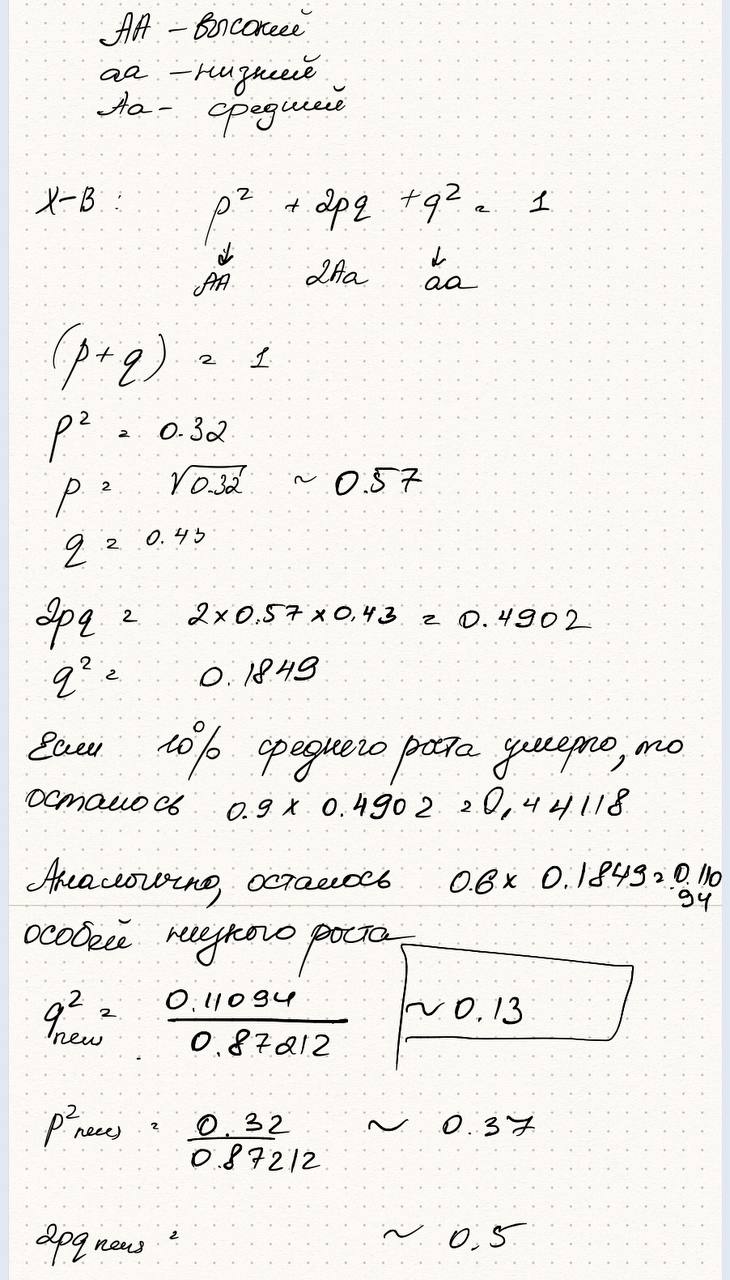 AA - высокий
aa - низкий
Aa - средний
Х-В: p² + 2pq + q² = 1
AA 2Aa aa
(p+q) = 1
p² = 0.32
p = √0.32 ~ 0.57
q = 0.43
2pq = 2×0.57×0.43 = 0.4902
q² = 0.1849
Если 10% среднего роста умерло, то
осталось 0.9 × 0.4902 = 0,44118
Аналогично, осталось 0.6 × 0.1849 = 0.110
94
особей низкого роста
q²new = 0.11094 / 0.87212 ~ 0.13
p²new = 0.32 / 0.87212 ~ 0.37
2pq new = ~ 0.5